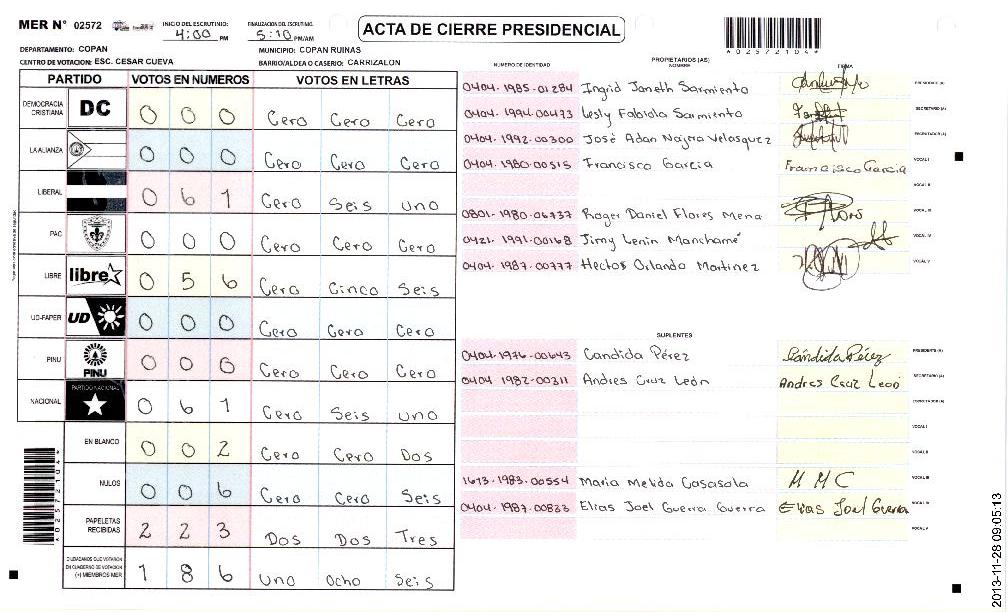 MER N° 02572
INICIO DEL ESCRUTINIO: 4:00 PM
FINALIZACION DEL ESCRUTINIO: 5:10 PM/AM
ACTA DE CIERRE PRESIDENCIAL
*02572104*
DEPARTAMENTO: COPAN
MUNICIPIO: COPAN RUINAS
CENTRO DE VOTACION: ESC. CESAR CUEVA
BARRIO/ALDEA O CASERIO: CARRIZALON
PARTIDO VOTOS EN NUMEROS VOTOS EN LETRAS
DEMOCRACIA CRISTIANA DC 0 0 0 Cero Cero Cero
LA ALIANZA 0 0 0 Cero Cero Cero
LIBERAL 0 6 1 Cero Seis uno
PAC 0 0 0 Cero Cero Cero
LIBRE libre 0 5 6 Cero Cinco Seis
UD-FAPER UD 0 0 0 Cero Cero Cero
PINU PINU 0 0 0 Cero Cero Cero
NACIONAL PARTIDO NACIONAL 0 6 1 Cero Seis uno
EN BLANCO 0 0 2 Cero Cero Dos
NULOS 0 0 6 Cero Cero Seis
PAPELETAS RECIBIDAS 2 2 3 Dos Dos Tres
CIUDADANOS QUE VOTARON EN CUADERNO DE VOTACION (+) MIEMBROS MER 1 8 6 uno ocho Seis
*02572104*
NUMERO DE IDENTIDAD PROPIETARIOS (AS) NOMBRE FIRMA
0404-1985-01284 Ingrid Janeth Sarmiento PRESIDENTE (A)
0404-1994-00473 Lesly Fabiola Sarmiento SECRETARIO (A)
0404-1992-00300 José Adan Najera Velasquez ESCRUTADOR (A)
0404-1980-00515 Francisco Garcia Francisco Garcia VOCAL I
VOCAL II
0801-1980-06737 Roger Daniel Flores Mena VOCAL III
0421-1991-00168 Jimy Lenin Manchamé VOCAL IV
0404-1987-00777 Hector Orlando Martinez VOCAL V
SUPLENTES
0404-1976-00643 Candida Pérez Cándida Pérez PRESIDENTE (A)
0404 1982-00311 Andres Cruz León Andres Cruz Leon SECRETARIO (A)
ESCRUTADOR (A)
VOCAL I
VOCAL II
1613-1983-00554 Maria Melida Casasola M M C VOCAL III
0404-1987-00833 Elias Joel Guerra Guerra Elias Joel Guerra VOCAL IV
VOCAL V
2013-11-28 09:05:13